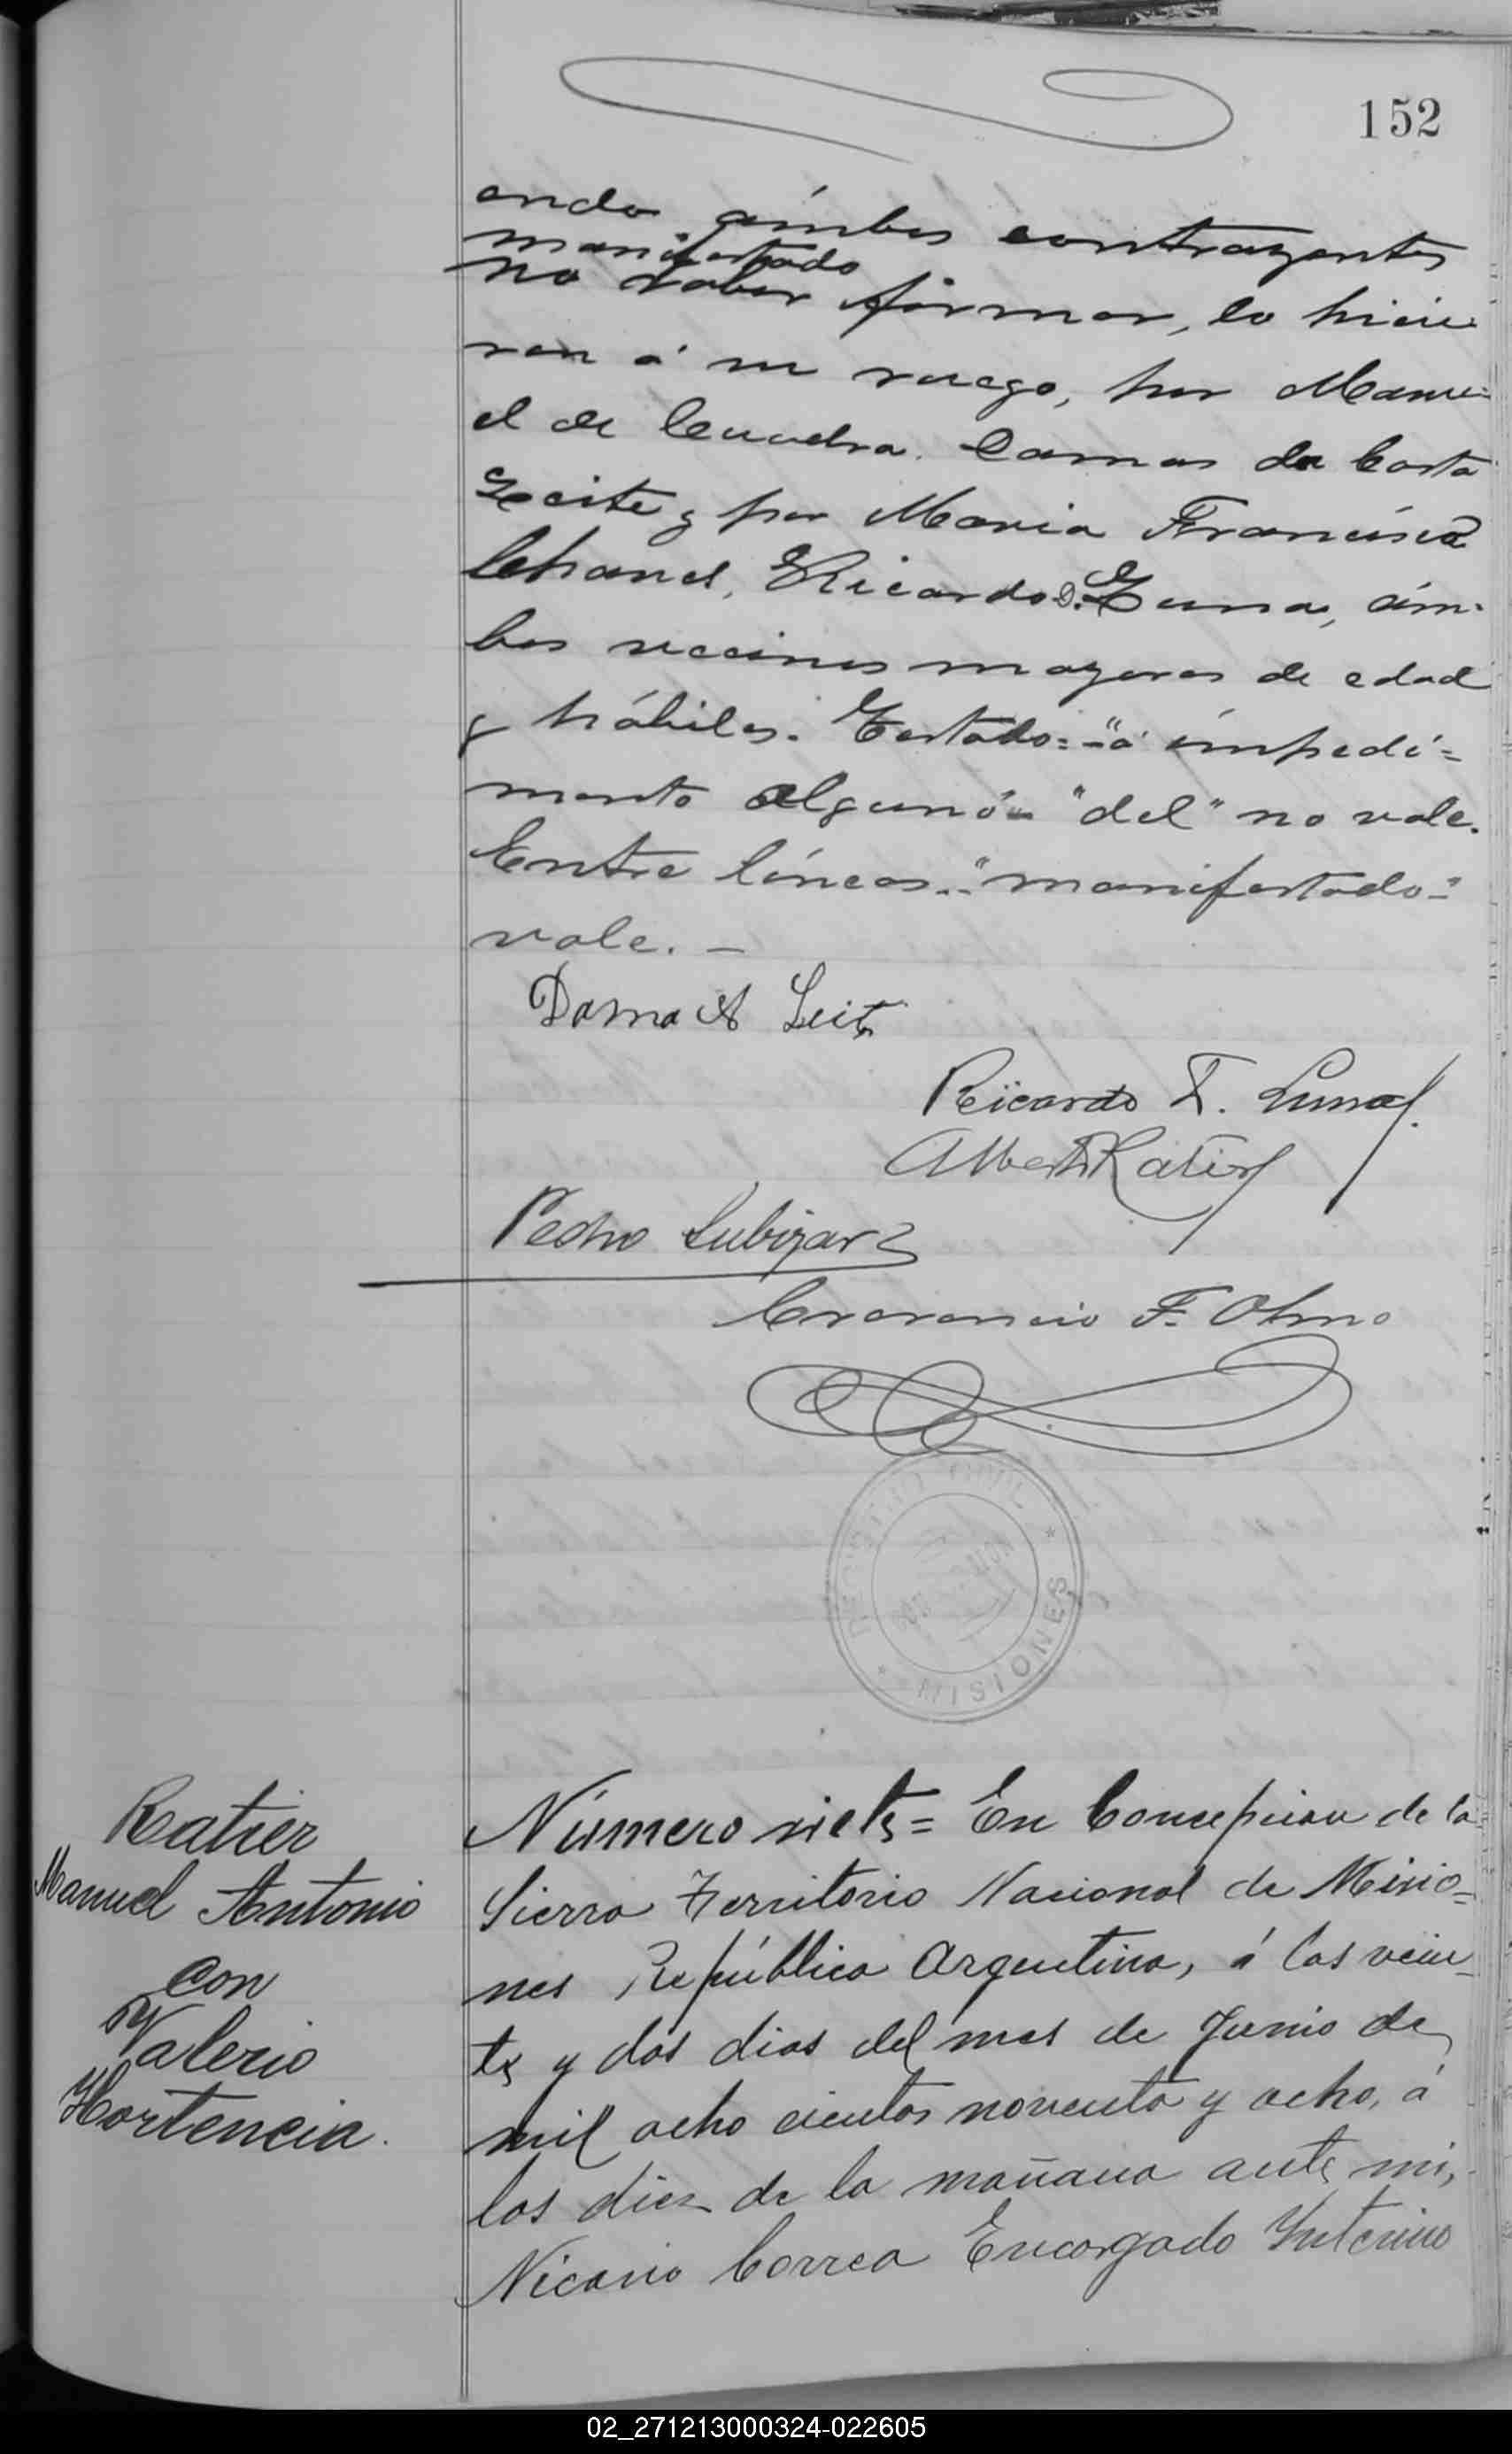 152
endo ámbos contrayentes
manifestado
no saber firmar, lo hicie
ron á su ruego, por Manu=
el de Cuadra. Damas da Costa
Leite y por Maria Francisca
Chanel, Ricardo D. Luna, ám-
bos vecinos mayores de edad
y hábiles. Testado:="á impedi=
mento alguno" "del" no vale.
Entre líneas.="manifestado="
vale. _
Dama A Leite
Ricardo T. Luna
Alberto Ratier
Pedro Lubizar
F. Olmo
REGISTRO CIVIL
MISIONES
Ratier
Manuel Antonio
con
Valerio
Hortencia.
Número siete= En Concepcion de la
Sierra Territorio Nacional de Misio=
nes República Argentina, á los vein_
te y dos dias del mes de Junio de
mil ocho cientos noventa y ocho, á
las diez de la mañana ante mi,
Nicanio Correa Encargado Interino
02_271213000324-022605